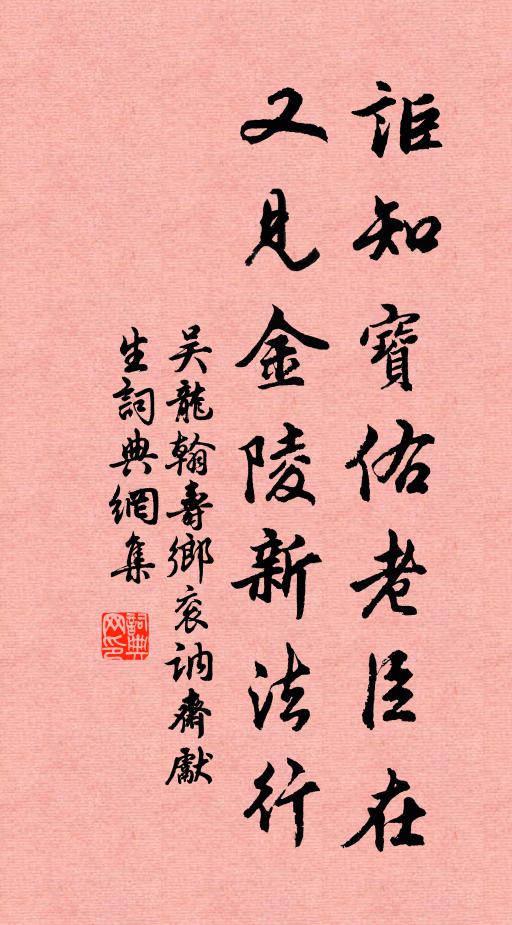 詎知寶佑老臣在
又見金陵新法行
吳龍翰壽鄉袞訥齋獻
生詞典網集
詞典網印